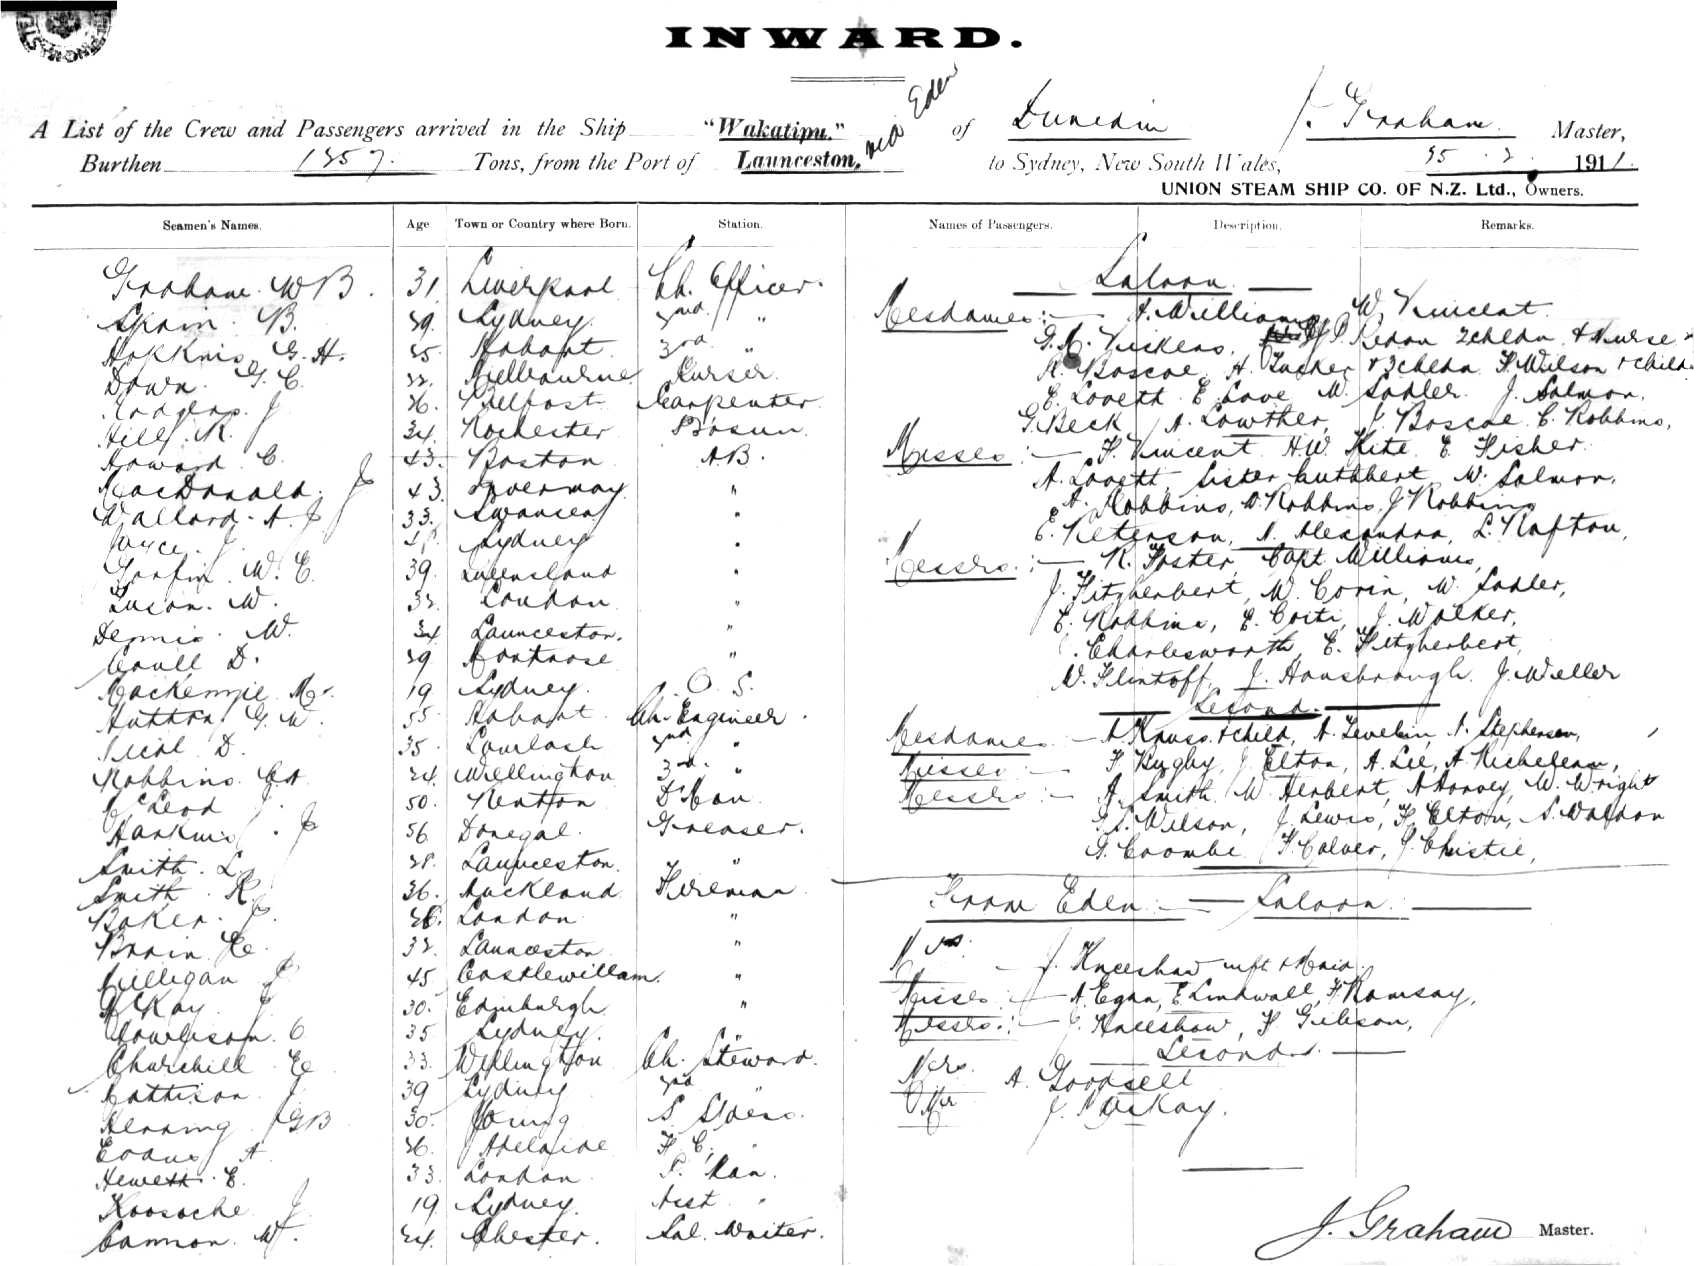 INWARD.
A List of the Crew and Passengers arrived in the Ship "Wakatipu." of Dunedin J. Graham Master,
via Eden
Burthen 1257. Tons, from the Port of Launceston, to Sydney, New South Wales, 25.2.1911.
UNION STEAM SHIP CO. OF N.Z. Ltd., Owners.
Seamen's Names. Age Town or Country where Born. Station. Names of Passengers. Description. Remarks.
Graham W B. 31 Liverpool Ch. Officer.
Spain. B. 29. Sydney. 2nd "
Hopkins G. H. 25. Hobart 3rd "
Down. G. C. 32. Melbourne Purser.
Rodgers. J 26. Belfast Carpenter.
Hill. R. 34. Rochester Bosun
Howard C. 43. Boston A.B.
MacDonald. J 43. "
Wallard. A. J 33. Swansea "
Joyce. J. Sydney "
Griffin. W. C. 39. Queensland "
Luson. W. 32. London "
Dennis. W. 34 Launceston. "
Coull D. 29 Montrose "
Mackenzie. M. 19 Sydney. O. S.
Hutton G. W. 55. Hobart. Ch. Engineer.
Nicol D. 35. 2nd "
Robbins. C A 24. Wellington 3rd. "
McLeod J. 50. D'Man
Harkins. J 56 Donegal. Greaser.
Smith. L. 28. Launceston. "
Smith R. 36. Auckland Fireman
Baker. J. London "
Brain. E. 32. Launceston "
Milligan J 45 Castlewillam. "
McKay. J 30. Edinburgh "
35 Sydney. "
Churchill. E. 33. Wellington Ch. Steward.
Mattison. J 39 Sydney 2nd
Herring. G B 30. Young S. S'dess.
Evans A 26. Adelaide F. C.
Hewett. E. 33. London P. Man.
J. 19 Sydney. Asst "
Cannon. W. 24. Chester. Sal. Waiter.
Saloon
Mesdames:— A. Williams W. Vincent.
G. M. Vickers, P. Redan 2 chldn & Nurse
R. Boscoe, A. Tucker & 3 chldn F. Wilson & child.
E. Lovett E Love W. Sadler. J. Salmon.
G. Beck A. Lowther, J. Boscoe C. Robbins,
Misses:— F. Vincent H.W. Kite E. Fisher.
A. Lovett, Sister Cuthbert W. Salmon.
A. Robbins, D. Robbins, J Robbins
E. Peterson, A. Alexandra, L. Rafton,
Messrs.:— R. Foster, Capt Williams,
J. Fitzherbert, W. Corin, W. Sadler,
E. Robbins, E. Coiti, J. Walker,
Charlesworth, E. Fitzherbert,
W. Flintoff, J. Hansbrough. J. Weller
Second.
Mesdames — A Krause & child, A. Levelin, A. Stephenson,
Misses:— F Rugby, J. Elton, A. Lee, A. Richeleau,
Messrs:— A. Smith, W. Herbert, A Harvey, W. Wright
S. Wilson, J. Lewis, F. Elton, S. Waldron
G. Coombe F. Calver, J. Christie,
From Eden:— Saloon.
Mrs. — J. Kneeshaw inft & Maid.
Misses:— A. Egan, E Lindwall, F. Ramsay,
Messrs.:— J. Kneeshaw, F. Gibson,
Second.
Mrs. A. Goodsell
Mr J. McKay.
J. Graham Master.